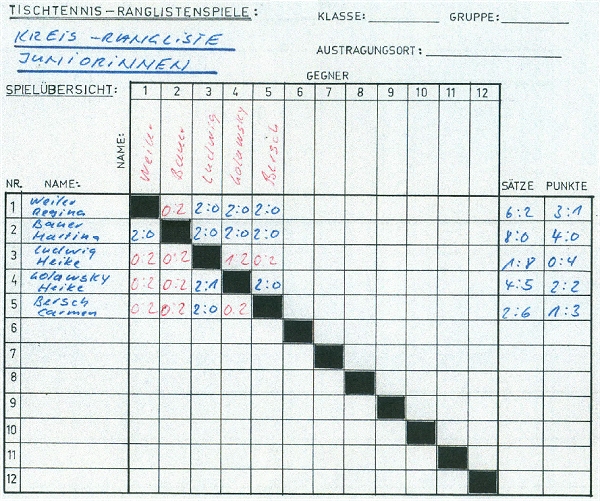 TISCHTENNIS-RANGLISTENSPIELE: KLASSE: GRUPPE:
KREIS-RANGLISTE
JUNIORINNEN
AUSTRAGUNGSORT:
GEGNER
SPIELÜBERSICHT: 1 2 3 4 5 6 7 8 9 10 11 12
NAME: Weiler Bauer Ludwig Golawsky Bersch
NR. NAME: SÄTZE PUNKTE
1 Weiler Regina 0:2 2:0 2:0 2:0 6:2 3:1
2 Bauer Martina 2:0 2:0 2:0 2:0 8:0 4:0
3 Ludwig Heike 0:2 0:2 1:2 0:2 1:8 0:4
4 Golawsky Heike 0:2 0:2 2:1 2:0 4:5 2:2
5 Bersch Carmen 0:2 0:2 2:0 0:2 2:6 1:3
6
7
8
9
10
11
12